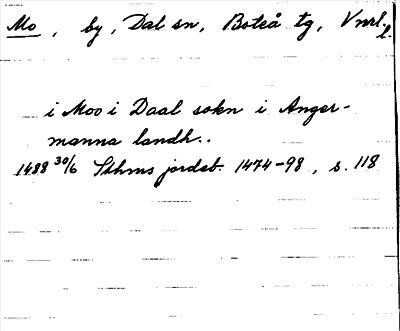 Mo, by, Dal sn, Boteå tg, Vnrl. l.
i Moo i Daal sokn i Anger-
manna landh..
1488 30/6 Sthms jordeb. 1474-98, s. 118